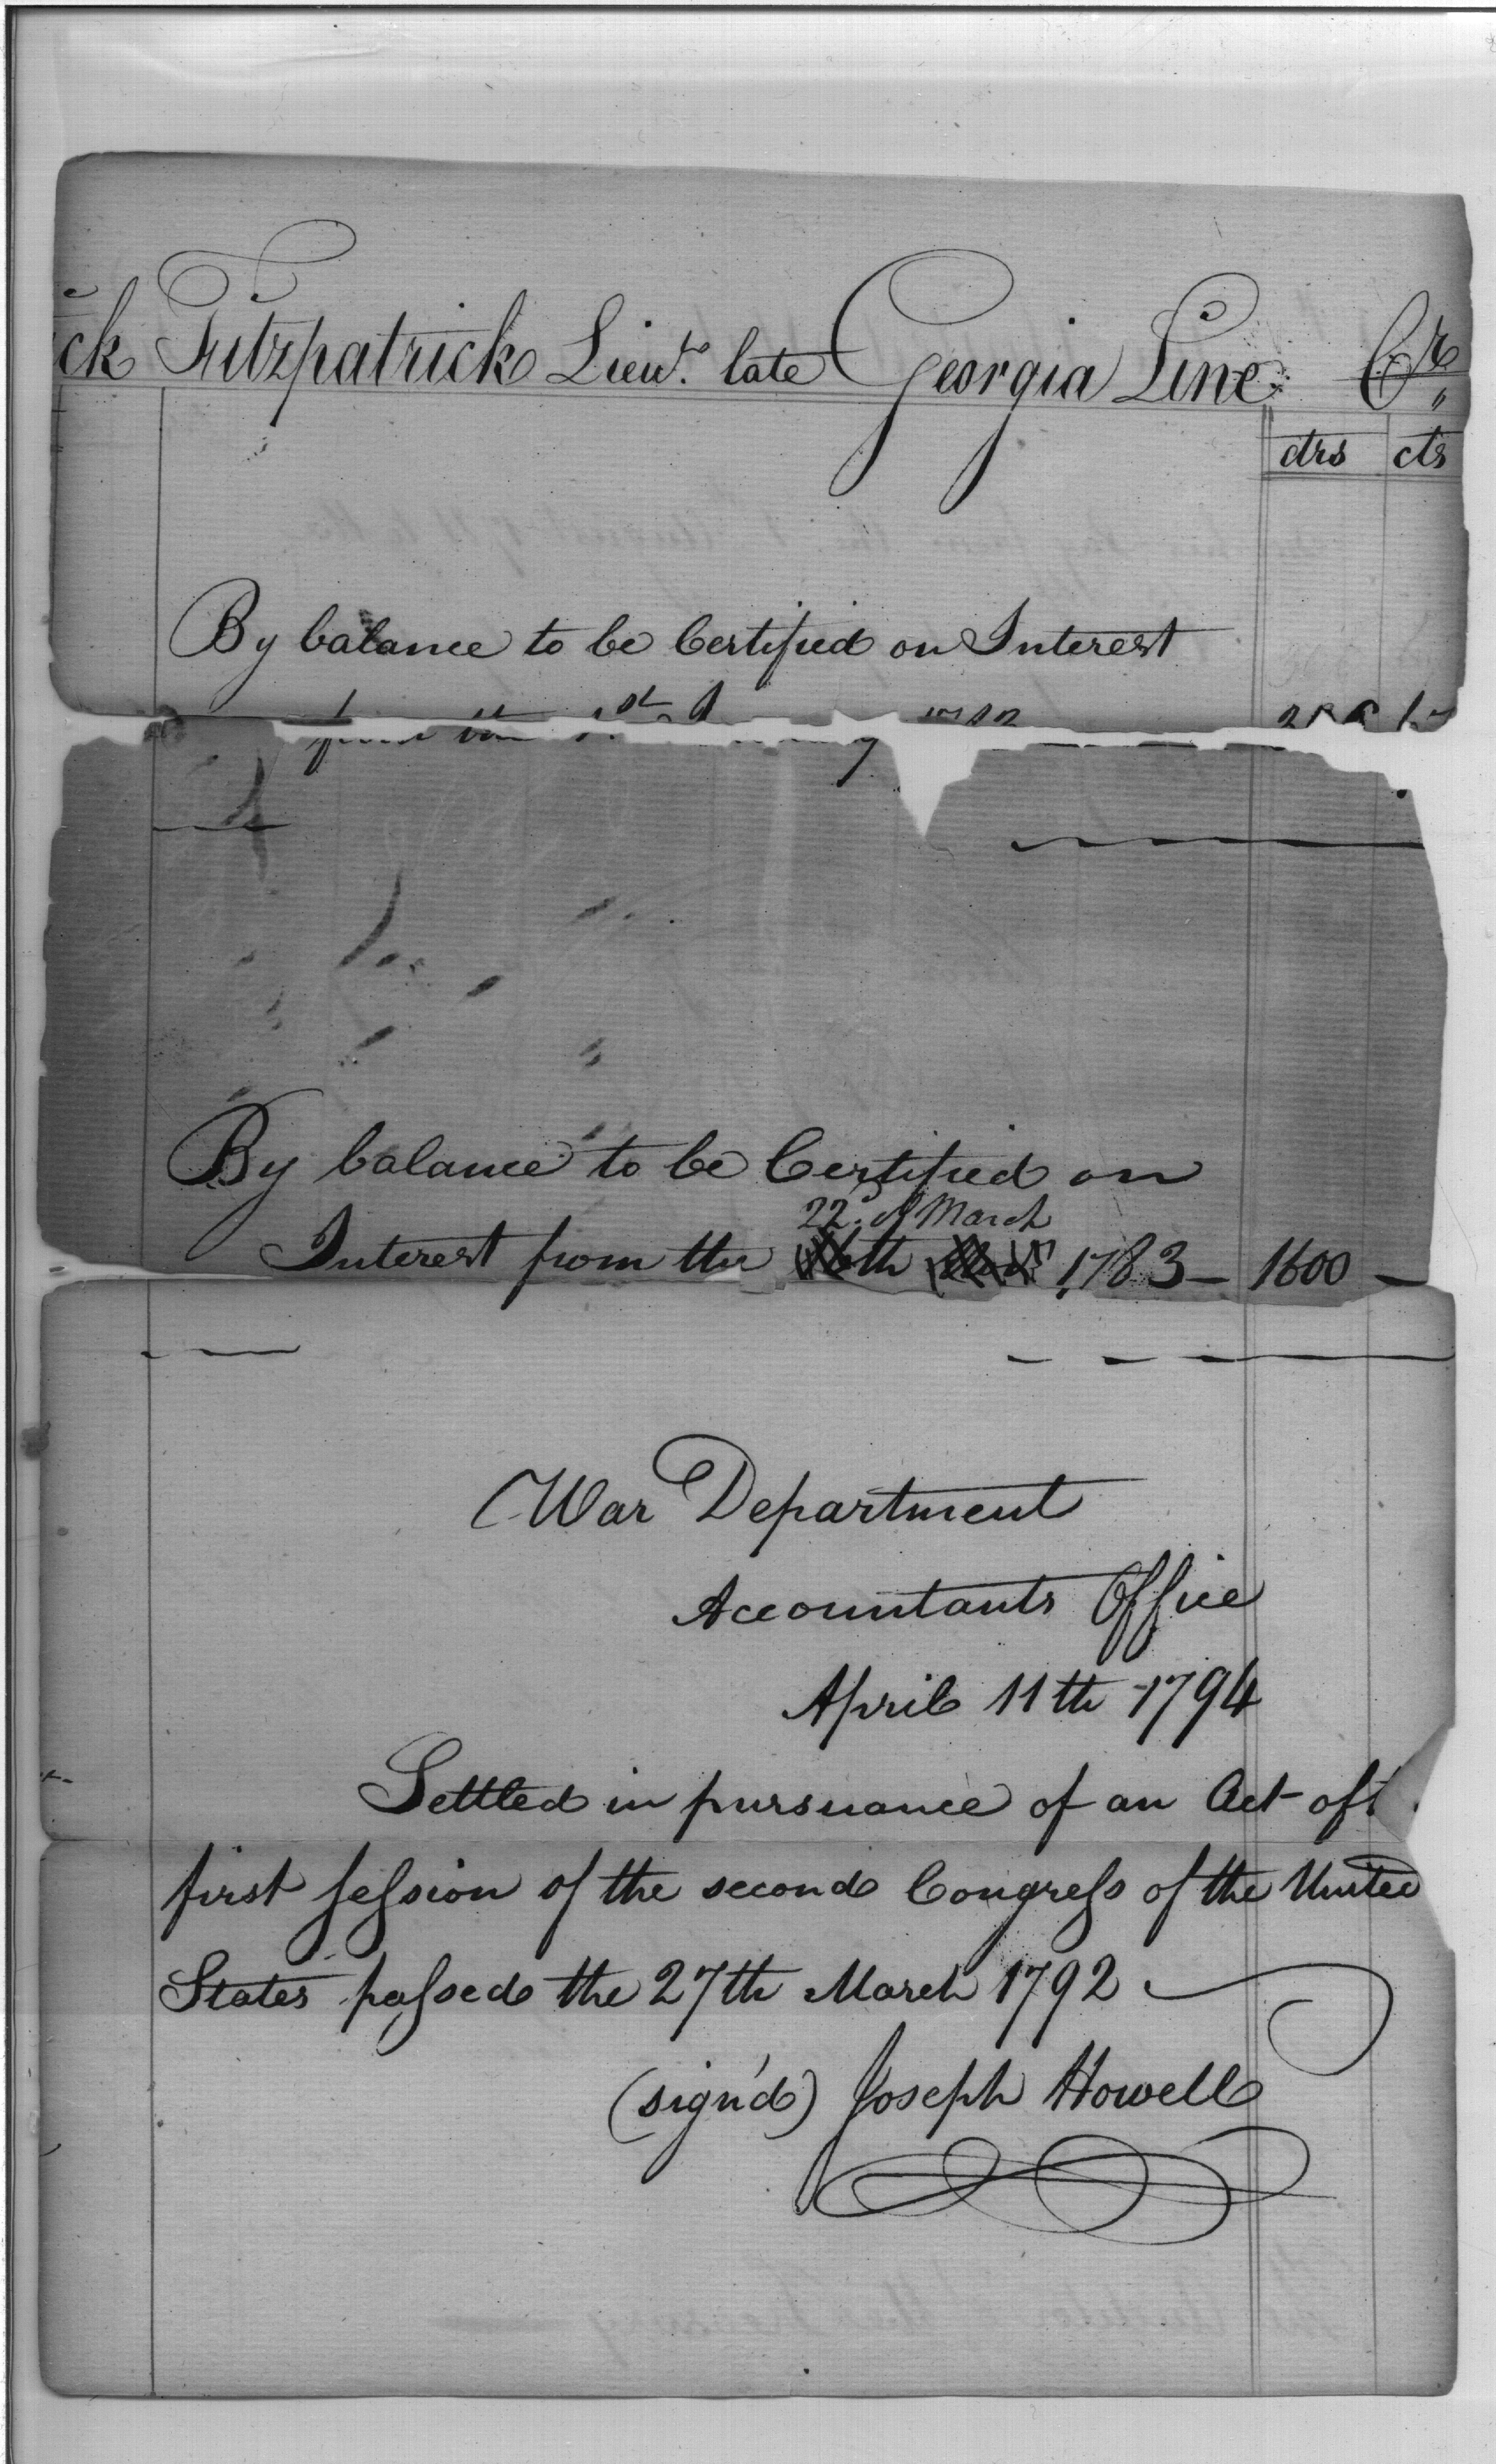 ck Fitzpatrick Lieut. late Georgia Line Cr
drs cts
By balance to be Certified on Interest
from the 1st
By balance to be Certified on
22d. of March
Interest from the 1783 – 1600 –
War Department
Accountants Office
April 11th 1794
Settled in pursuance of an Act of t
first session of the second Congress of the United
States passed the 27th March 1792
(sign'd) Joseph Howell